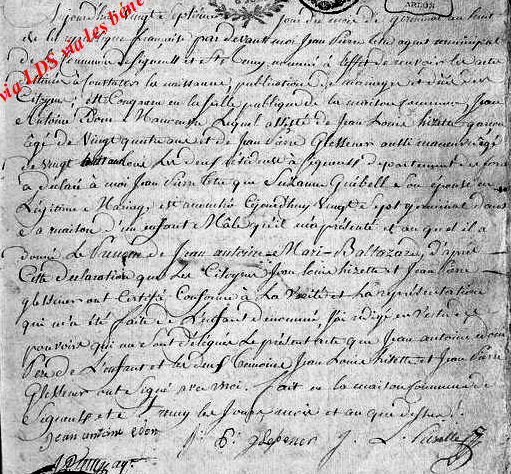 via LDS via les béné
Aujourdhuy vingt septieme jour du mois de germinal an huit
de la Republique française pardevant moi Jean Pierre
Commune de et nommé à l'effet de recevoir les actes
destinés à constater la naissance, publication de mariage et décès des
Citoyens, est Comparu en la salle publique de la maison Commune, Jean
Antoine Lequel assisté de Jean Louis hizette garçon
agé de Vingt quatre ans et de Jean Pierre Glessener aussi agé
de vingt ans Les deux résidents à département de
a déclaré à moi Jean Pierre que Suzanne Son épouse en
Légitime Mariage, est accouchée Cejourdhuy Vingt sept germinal dans
Sa maison d'un enfant Mâle qu'il m'a présenté et auquel il a
donné Le Prenom de Jean antoine Mari Baltazar, d'après
Cette déclaration que Les Citoyens Jean Louis hizette et Jean Pierre
glessener ont Certifié Conforme à La Vérité et La représentation
qui m'a été faite de L'enfant denommé, J'ai rédigé en Vertu des
pouvoirs qui me sont délégués Le present acte que Jean antoine
Père de L'enfant et Les deux temoins Jean Louis hizette et Jean Pierre
Glessener ont Signé avec moi. fait en la maison Commune de
et Les Jours, mois et an que dessus.
Jean antoine edon
J. P. glesener J. L. hizette